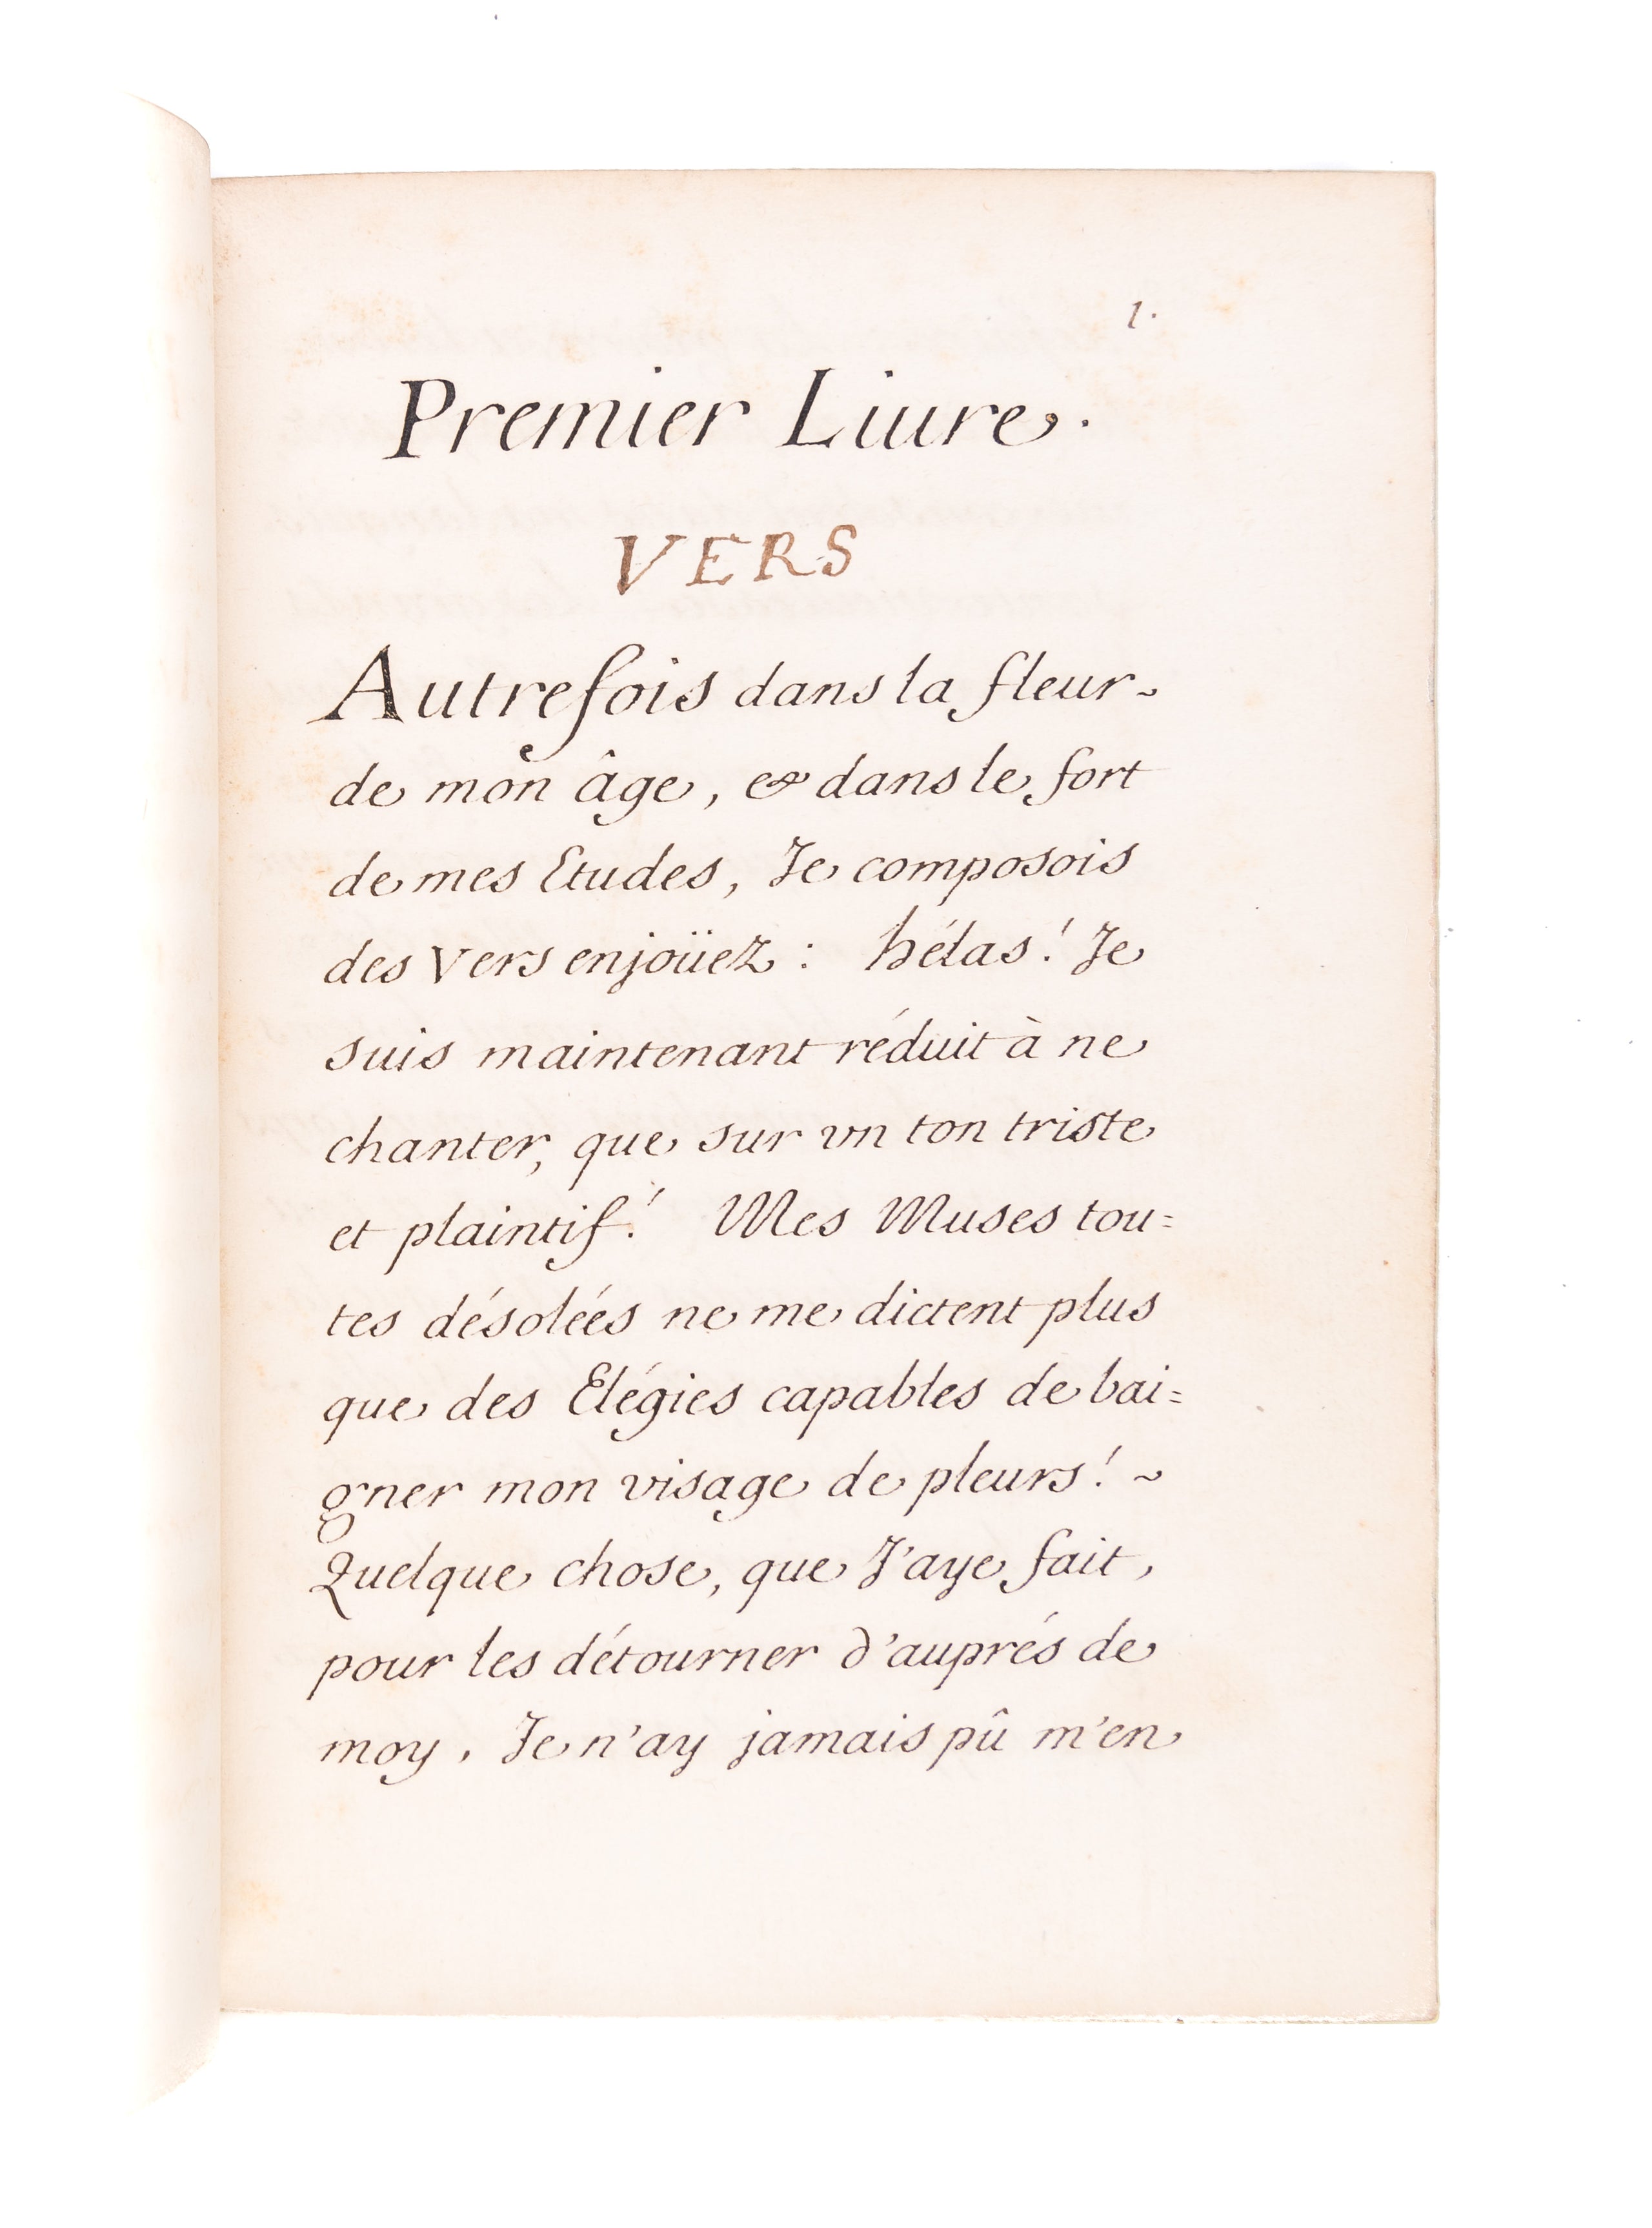 1.
Premier Liure.
VERS
Autrefois dans la fleur
de mon âge, & dans le fort
de mes Etudes, Je composois
des Vers enjoüez : hélas ! Je
suis maintenant réduit à ne
chanter, que sur vn ton triste
et plaintif ! Mes Muses tou=
tes désolées ne me dictent plus
que des Elégies capables de bai=
gner mon visage de pleurs ! ~
Quelque chose, que J'aye fait,
pour les détourner d'auprés de
moy, Je n'ay jamais pû m'en